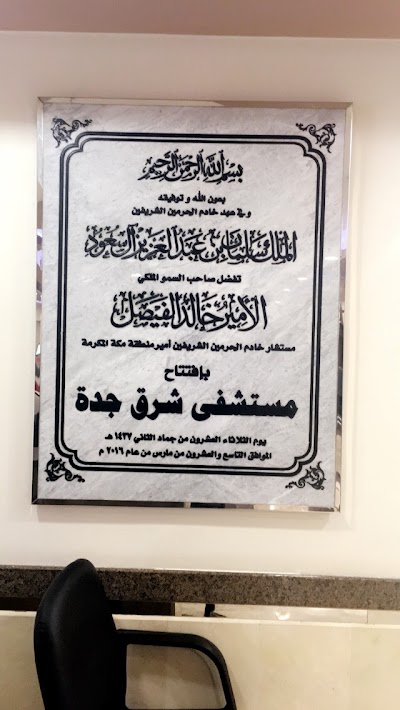 بسم الله الرحمن الرحيم
بعون الله و توفيقه
و في عهد خادم الحرمين الشريفين
الملك سلمان بن عبد العزيز آل سعود
تفضل صاحب السمو الملكي
الأمير خالد الفيصل
مستشار خادم الحرمين الشريفين أمير منطقة مكة المكرمة
بإفتتاح
مستشفى شرق جدة
يوم الثلاثاء العشرون من جماد الثاني ١٤٣٧ هـ
الموافق التاسع والعشرون من مارس من عام ٢٠١٦ م